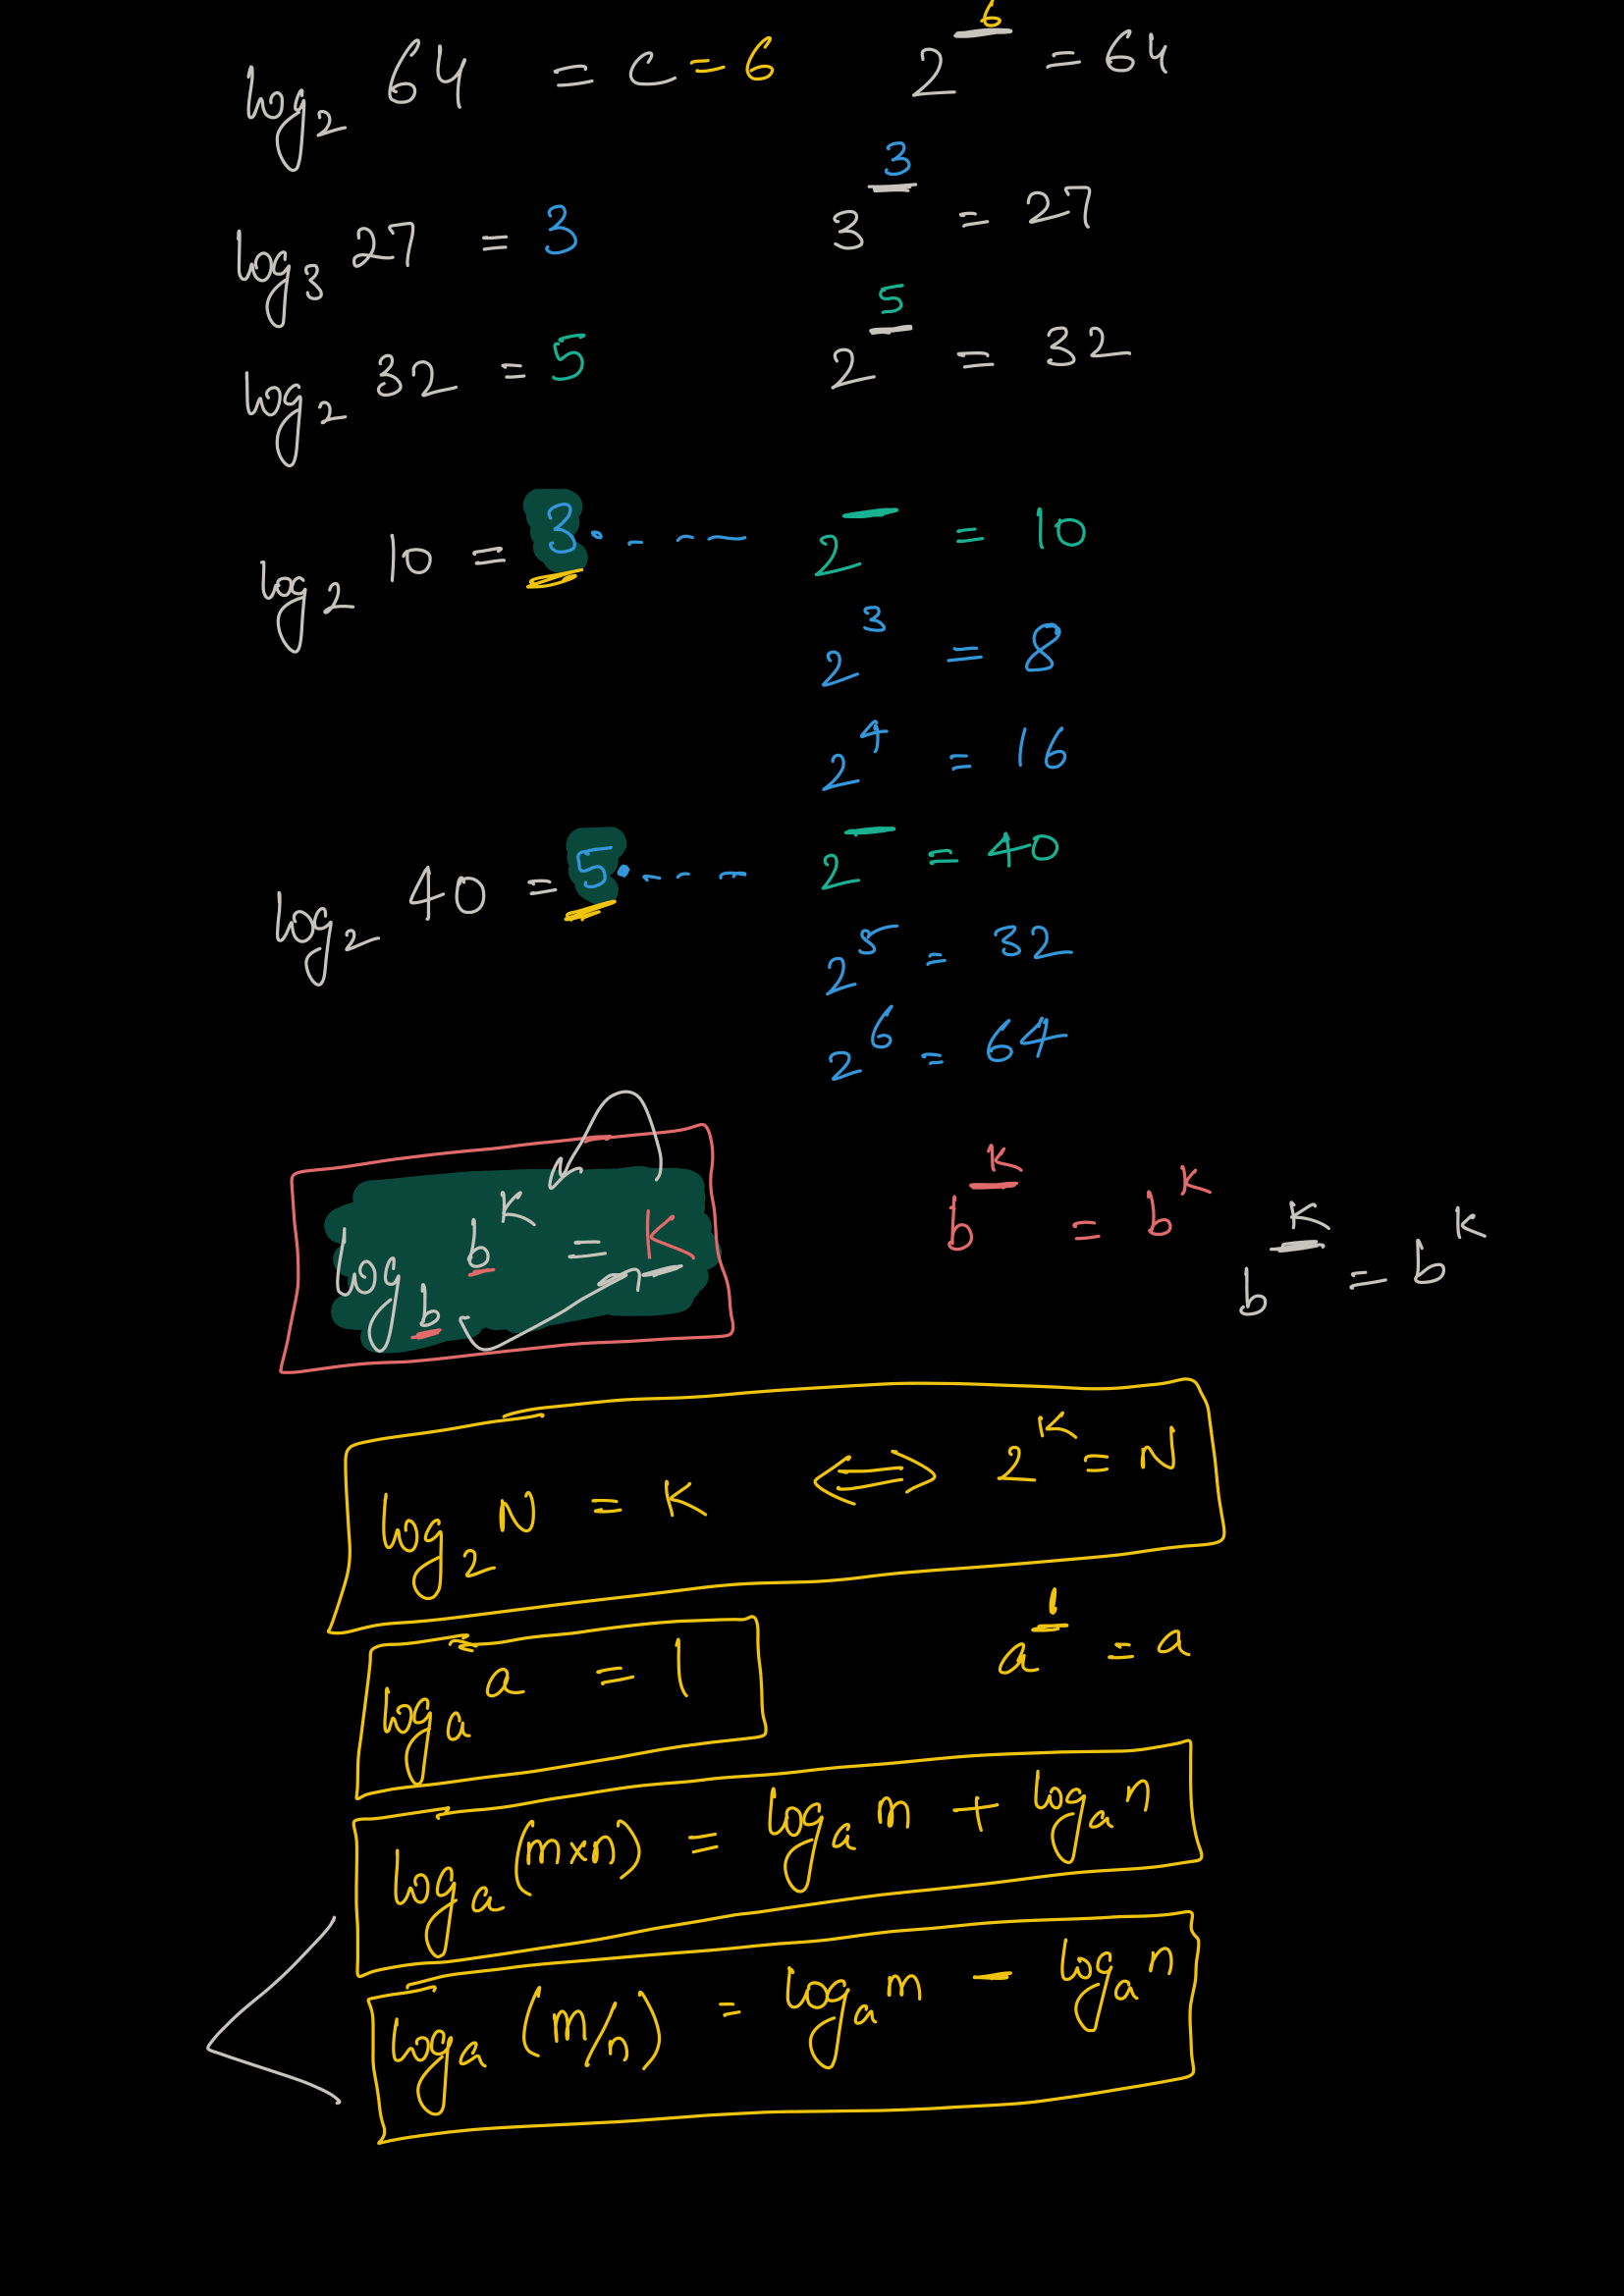 log₂ 64 = c = 6    2⁶ = 64
log₃ 27 = 3    3³ = 27
log₂ 32 = 5    2⁵ = 32
log₂ 10 = 3. - - - -    2^— = 10
2³ = 8
2⁴ = 16
log₂ 40 = 5. - - - -    2^— = 40
2⁵ = 32
2⁶ = 64
log_b b^K = K    b^K = b^K    b^K = b^K
log₂ N = K ⟺ 2^K = N
log_a a = 1    a¹ = a
log_a (m×n) = log_a m + log_a n
log_a (m/n) = log_a m − log_a n